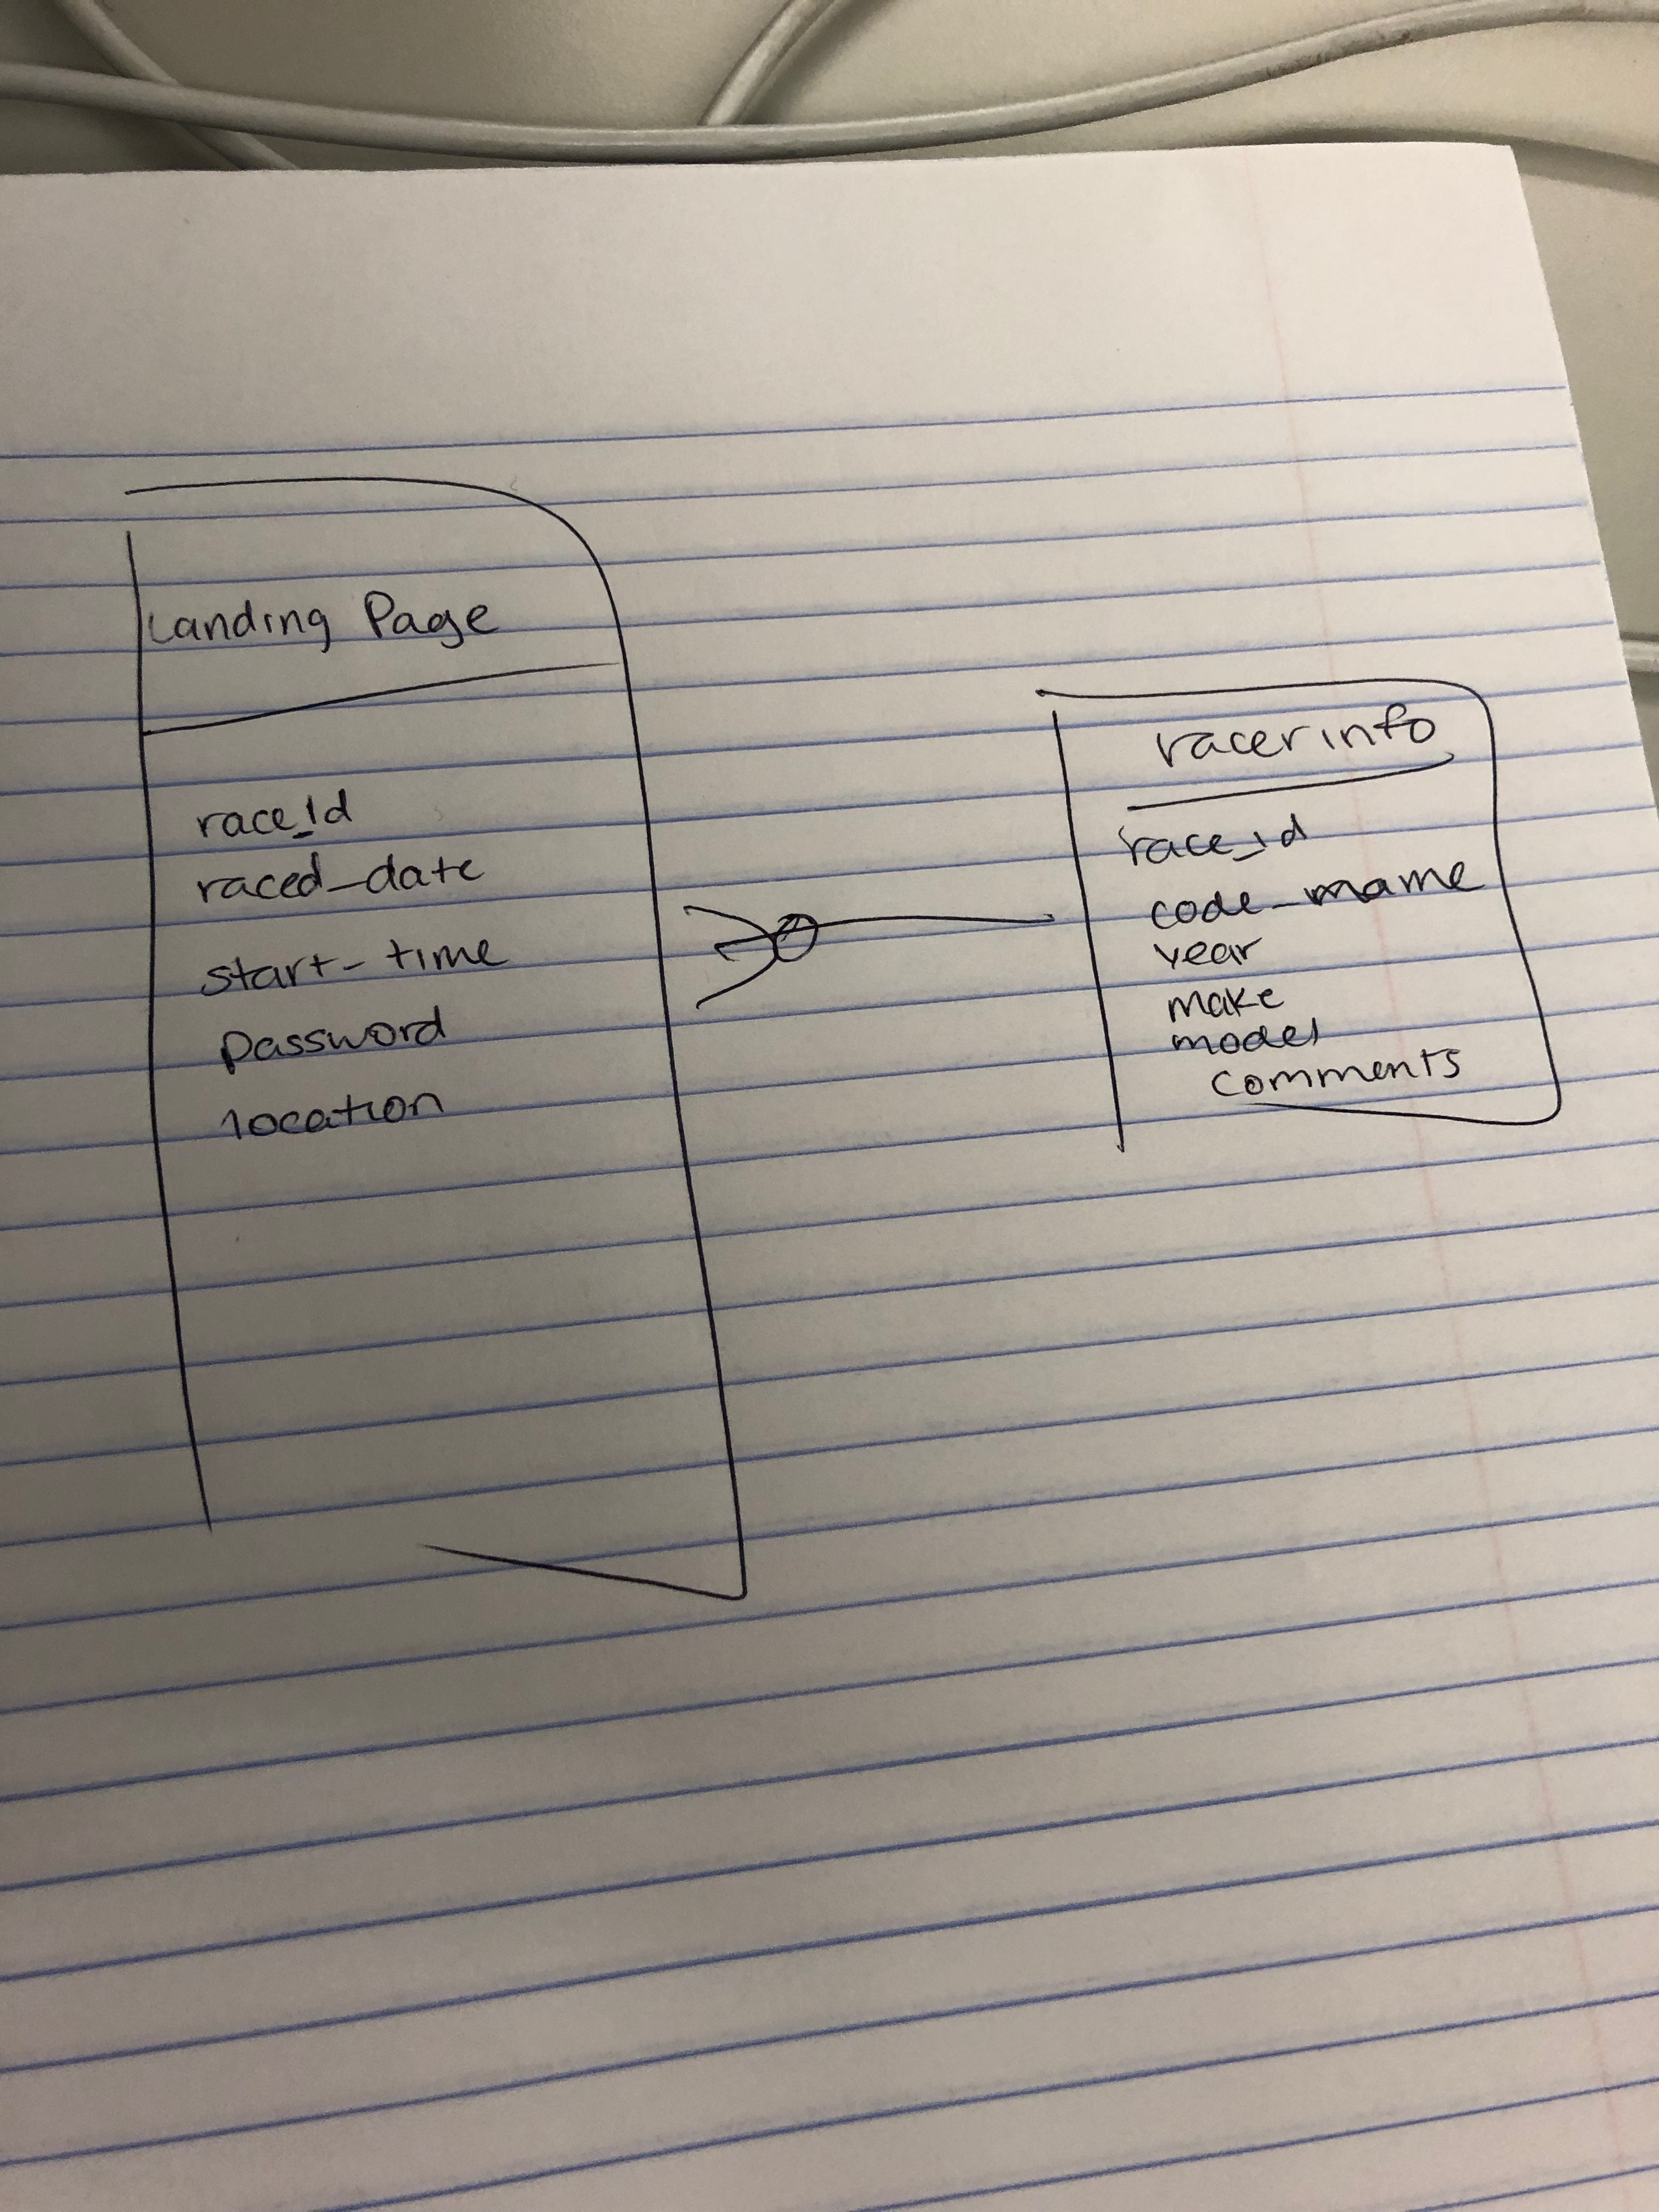 Landing Page
race_id
raced_date
start_time
password
location
racerinfo
race_id
code_mame
year
make
model
comments